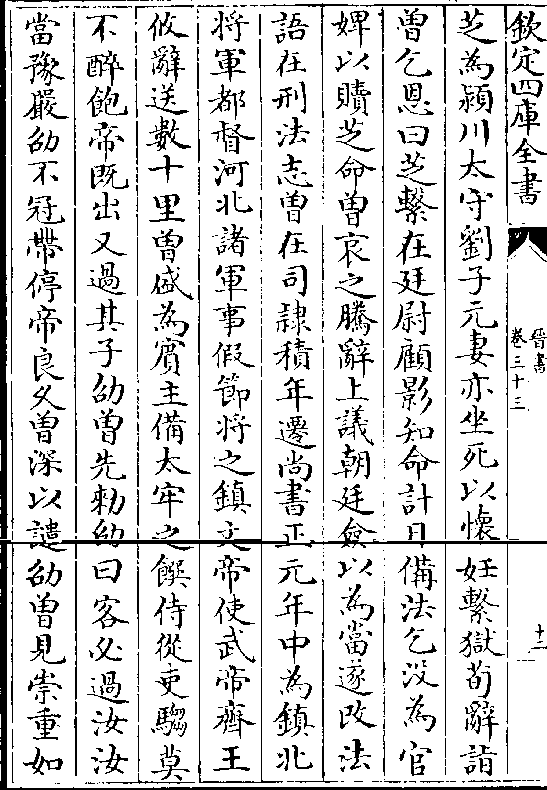 欽定四庫全書
晉書
卷三十三
十二
芝為潁川太守劉子元妻亦坐死以懷妊繫獄荀辭詣
曾乞恩曰芝繫在廷尉顧影知命計日備法乞沒為官
婢以贖芝命曾哀之騰辭上議朝廷僉以為當遂改法
語在刑法志曾在司隸積年遷尚書正元年中為鎮北
将軍都督河北諸軍事假節将之鎮文帝使武帝齊王
攸辭送數十里曾盛為賓主備太牢之饌侍從吏騶莫
不醉飽帝既出又過其子劭曾先勅劭曰客必過汝汝
當豫嚴劭不冠帶停帝良久曾深以譴劭曾見崇重如